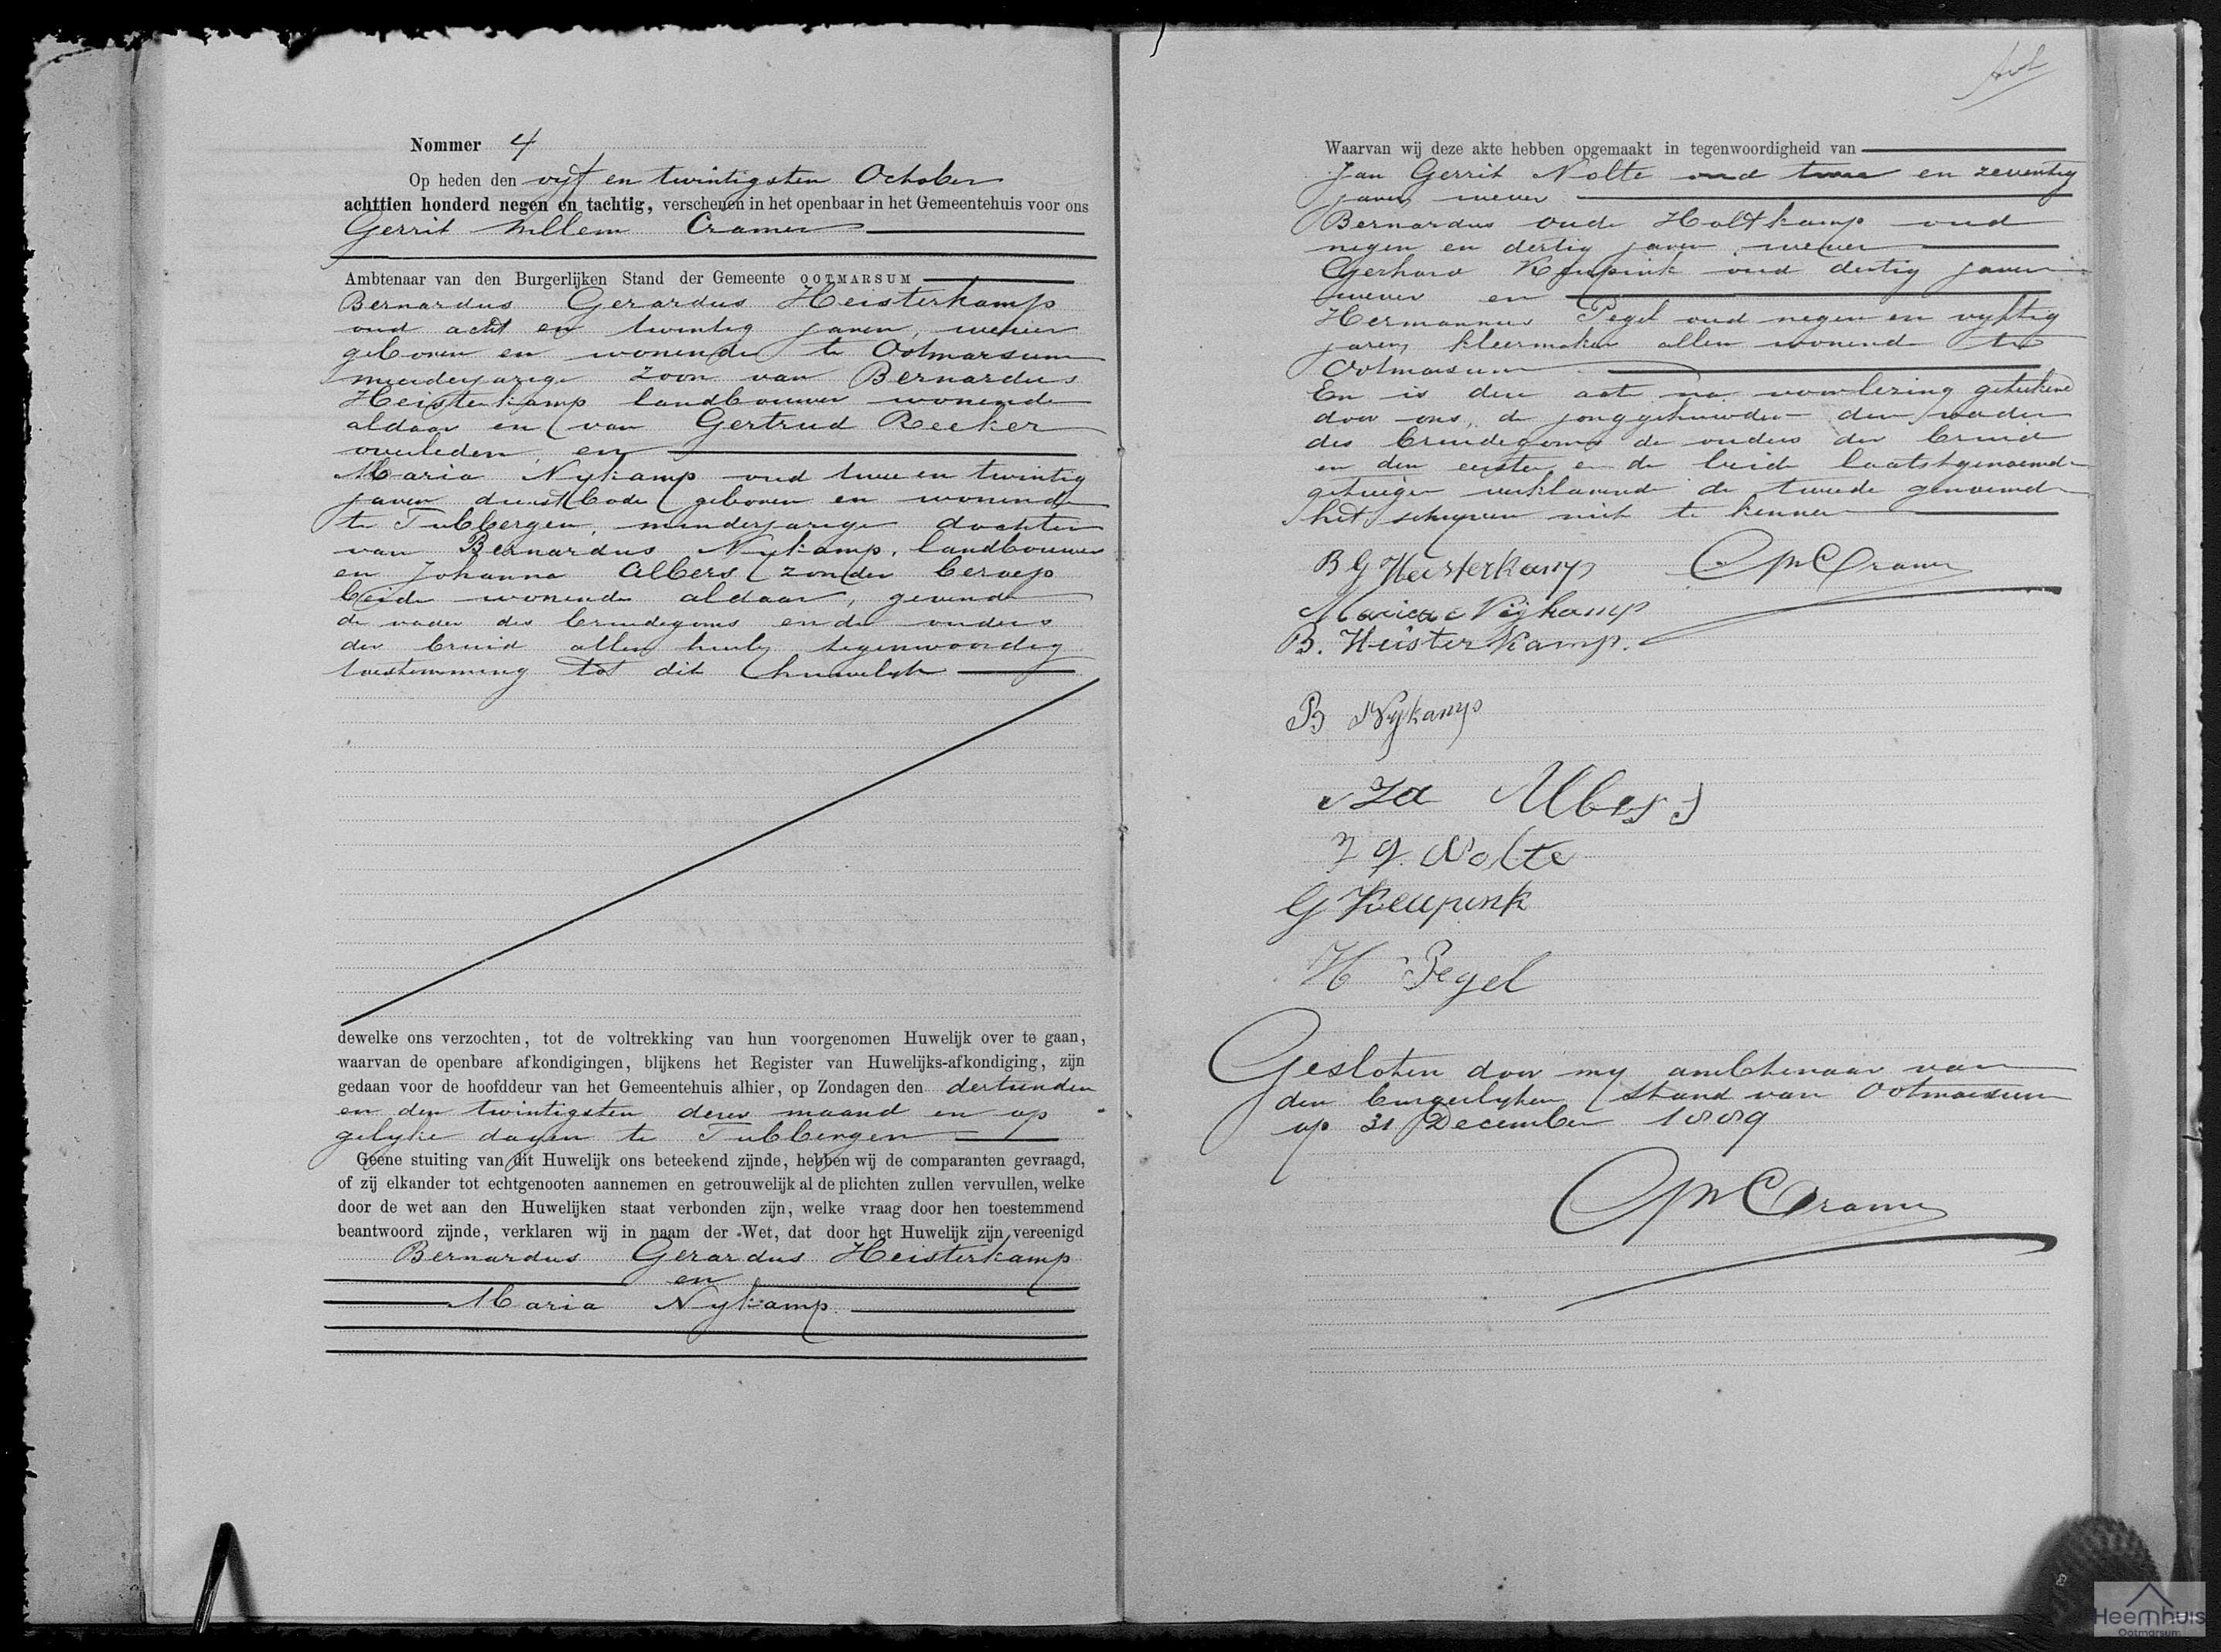 Nommer 4
Op heden den vyf en twintigsten October
achttien honderd negen en tachtig, verschenen in het openbaar in het Gemeentehuis voor ons
Gerrit Willem Cramer
Ambtenaar van den Burgerlijken Stand der Gemeente OOTMARSUM
Bernardus Gerardus Heisterkamp
oud acht en twintig jaren, wever
geboren en wonende te Ootmarsum
minderjarige zoon van Bernardus
Heisterkamp landbouwer wonende
aldaar en van Gertrud Reeker
overleden, en
Maria Nykamp oud twee en twintig
jaren dienstbode geboren en wonende
te Tubbergen, minderjarige dochter
van Bernardus Nykamp, landbouwer
en Johanna Albers zonder beroep
beide wonende aldaar, gevende
de vader des bruidegoms en de ouders
der bruid allen hierby tegenwoordig
toestemming tot dit huwelyk
dewelke ons verzochten, tot de voltrekking van hun voorgenomen Huwelijk over te gaan,
waarvan de openbare afkondigingen, blijkens het Register van Huwelijks-afkondiging, zijn
gedaan voor de hoofddeur van het Gemeentehuis alhier, op Zondagen den dertienden
en den twintigsten dezer maand en op
gelyke dagen te Tubbergen
Geene stuiting van dit Huwelijk ons beteekend zijnde, hebben wij de comparanten gevraagd,
of zij elkander tot echtgenooten aannemen en getrouwelijk al de plichten zullen vervullen, welke
door de wet aan den Huwelijken staat verbonden zijn, welke vraag door hen toestemmend
beantwoord zijnde, verklaren wij in naam der Wet, dat door het Huwelijk zijn vereenigd
Bernardus Gerardus Heisterkamp
en
Maria Nykamp.
Waarvan wij deze akte hebben opgemaakt in tegenwoordigheid van
Jan Gerrit Nolte oud twee en zeventig
jaren wever
Bernardus oude Holtkamp oud
negen en dertig jaren wever
Gerhard Keupink oud dertig jaren
wever en
Hermannus Pegel oud negen en vyftig
jaren, kleermaker allen wonende te
Ootmarsum
En is deze acte na voorlezing geteekend
door ons, de jonggehuwden den vader
des bruidegoms de ouders der bruid
en den eersten en de beide laatstgenoemde
getuigen verklarende de tweede genoemde
het schryven niet te kennen
B G Heisterkamp GWCramer
Maria Nijkamp
B. Heisterkamp.
B Nykamp
Albers
J G. Nolte
G Keupink
H Pegel
Gesloten door my ambtenaar van
den burgerlyken stand van Ootmarsum
op 31 December 1889
GWCramer
Heemhuis
Ootmarsum